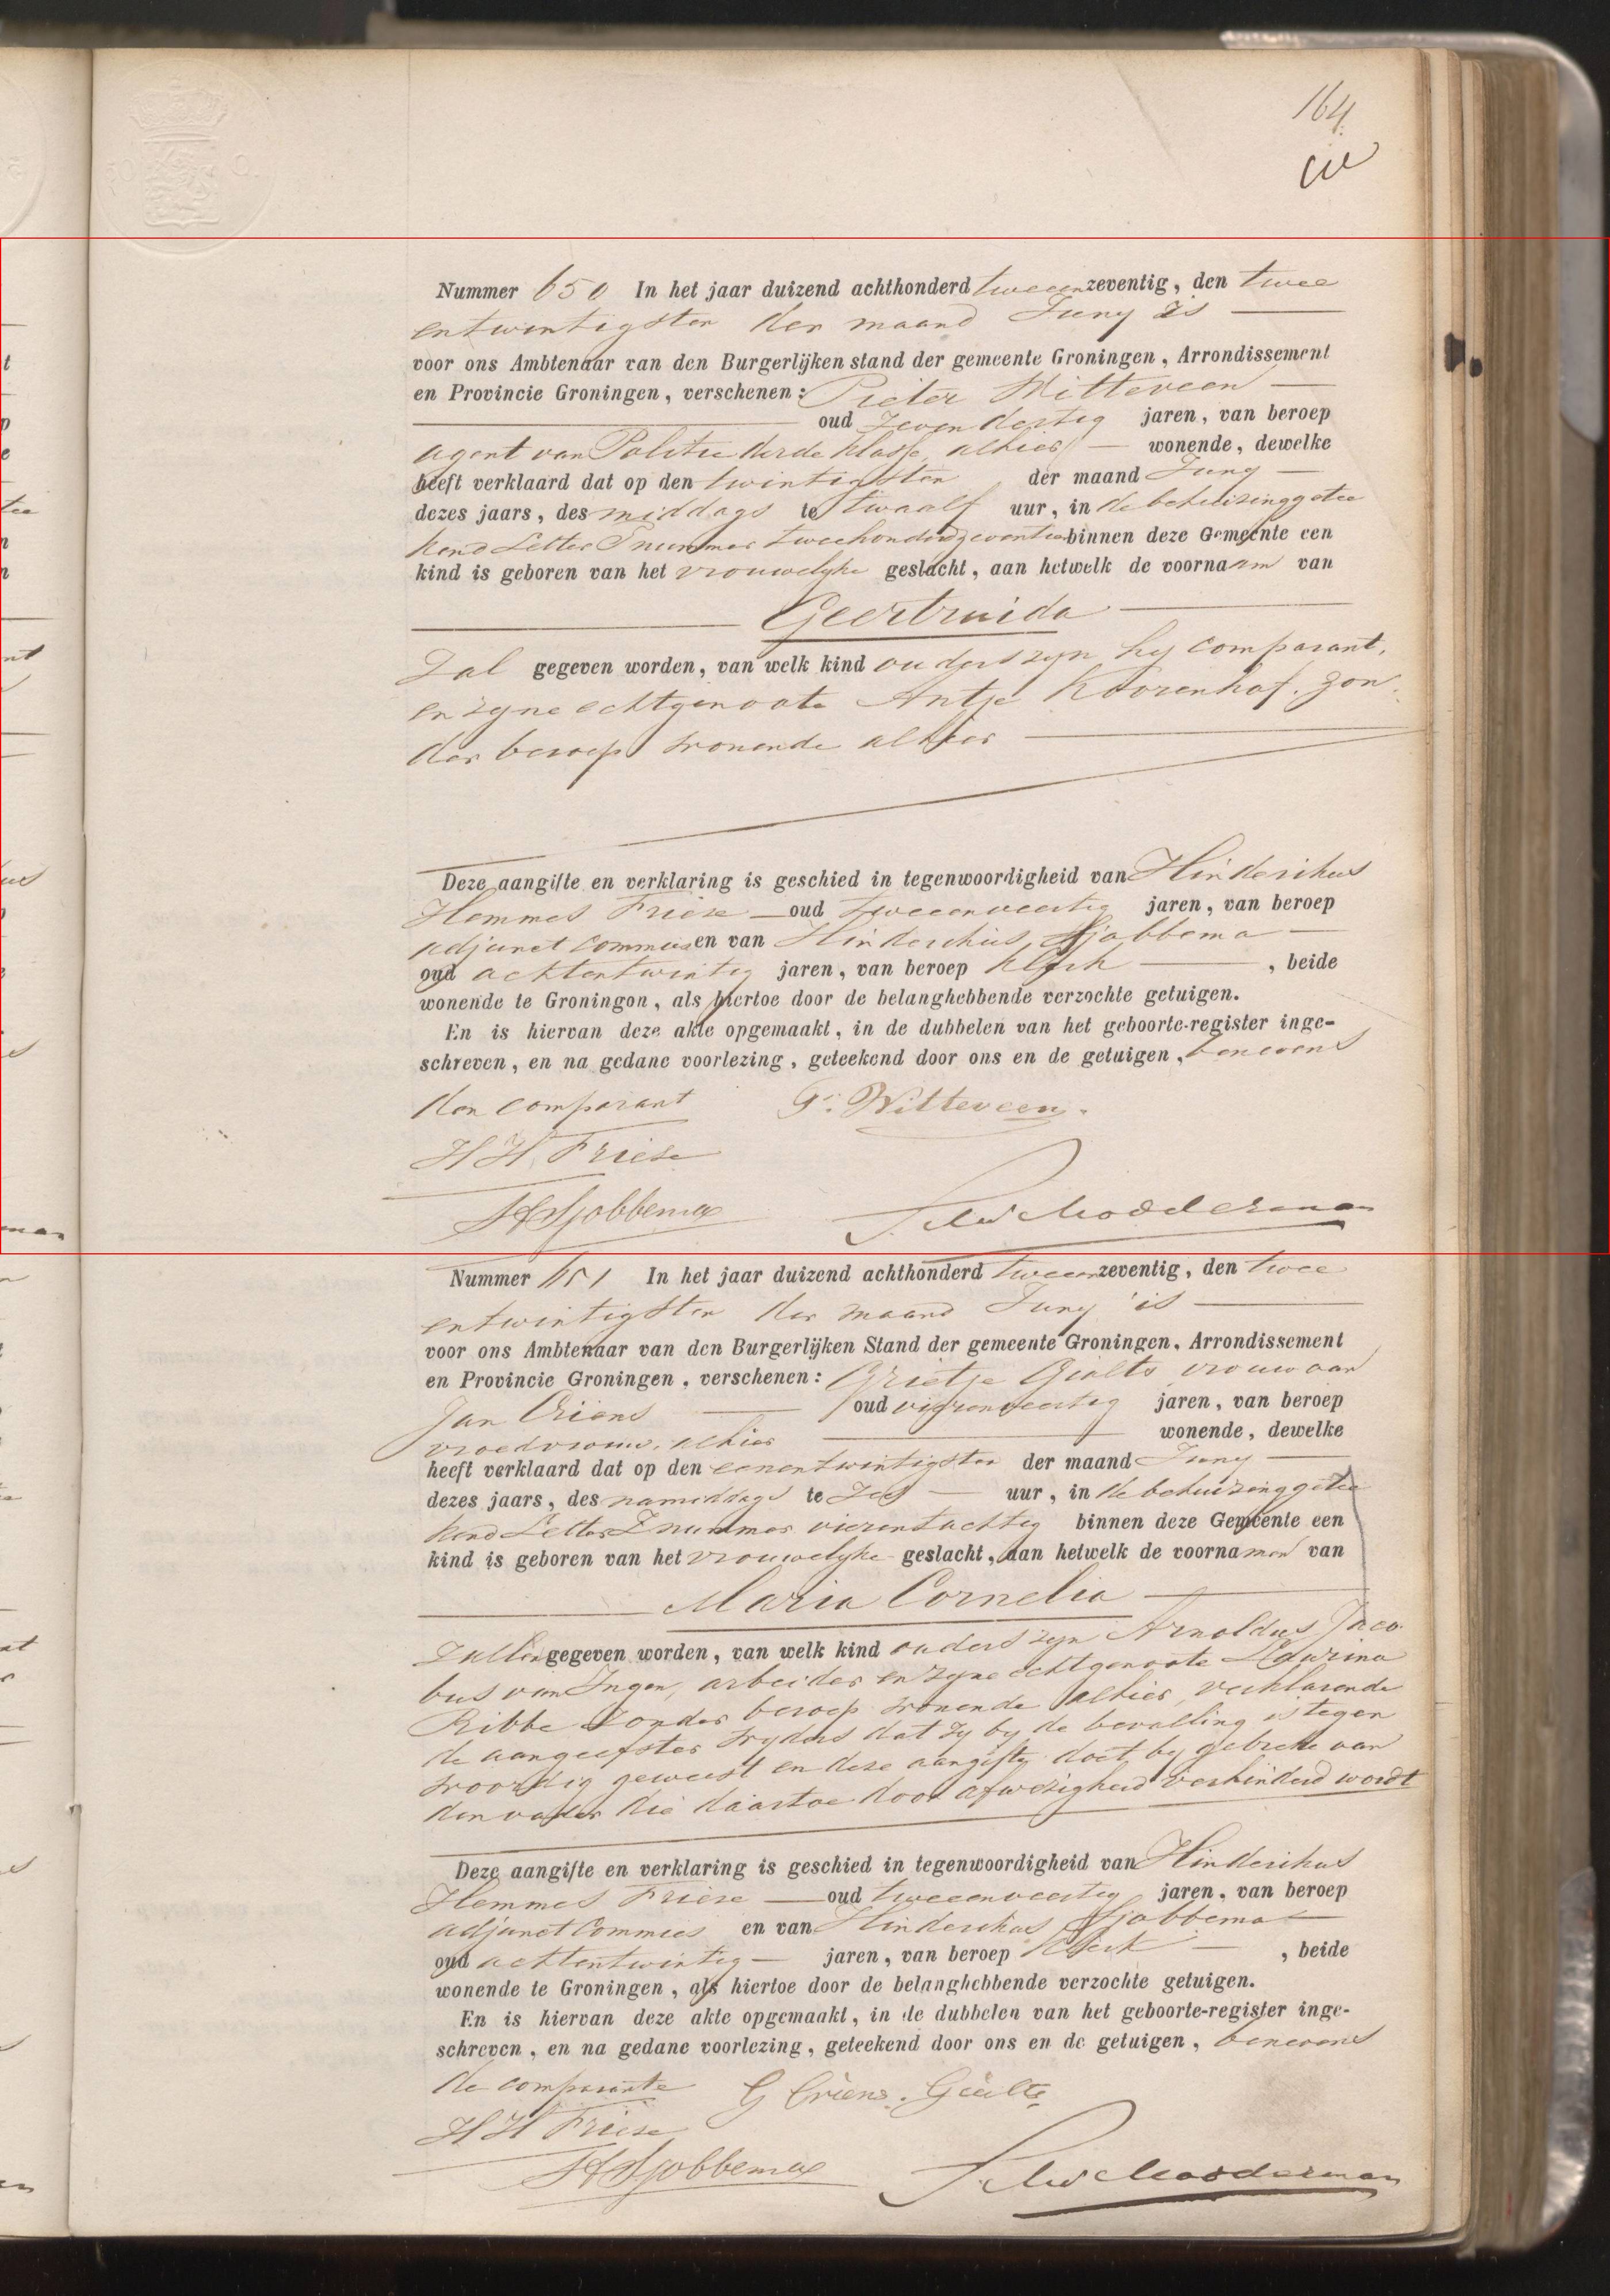 164
Nummer 650 In het jaar duizend achthonderd tweeenzeventig, den twee
entwintigsten der maand Juny is
voor ons Ambtenaar van den Burgerlijken stand der gemeente Groningen, Arrondissement
en Provincie Groningen, verschenen: Pieter Witteveen
oud zevendertig jaren, van beroep
agent van Politie derde klasse, alhier wonende, dewelke
heeft verklaard dat op den twintigsten der maand Juny
dezes jaars, des middags te twaalf uur, in de behuizing getee
kend Letter nummer tweehonderdzeventien binnen deze Gemeente een
kind is geboren van het vrouwelyke geslacht, aan hetwelk de voornaam van
Geertruida
Zal gegeven worden, van welk kind ouders zyn hy comparant,
en zyne echtgenoote Antje Koorenhof, zon
der beroep wonende alhier
Deze aangifte en verklaring is geschied in tegenwoordigheid van Hinderikus
Hemmes Friese oud tweeenveertig jaren, van beroep
adjunct commies en van Hinderikus Sjabbema
oud achtentwintig jaren, van beroep klerk, beide
wonende te Groningen, als hiertoe door de belanghebbende verzochte getuigen.
En is hiervan deze akte opgemaakt, in de dubbelen van het geboorte-register inge-
schreven, en na gedane voorlezing, geteekend door ons en de getuigen, benevens
den comparant P. Witteveen.
H H Friese
H Sjabbema Modderman
Nummer 651 In het jaar duizend achthonderd tweeenzeventig, den twee
entwintigsten der maand Juny is
voor ons Ambtenaar van den Burgerlijken Stand der gemeente Groningen, Arrondissement
en Provincie Groningen, verschenen: Grietje Gialts vrouw van
Jan Criens oud vierenveertig jaren, van beroep
vroedvrouw, alhier wonende, dewelke
heeft verklaard dat op den eenentwintigsten der maand Juny
dezes jaars, des namiddags te zes uur, in de behuizing getee
kend Letter Z nummer vierentachtig binnen deze Gemeente een
kind is geboren van het vrouwelyke geslacht, aan hetwelk de voornamen van
Maria Cornelia
Zullen gegeven worden, van welk kind ouders zyn Arnoldus Jaco
bus van Ingen, arbeider en zyne echtgenoote Laurina
Ribbe zonder beroep wonende alhier, verklarende
de aangeefster wyders dat zy by de bevalling is tegen
woordig geweest en deze aangifte doet by gebreke van
den vader die daartoe door afwezigheid verhinderd wordt
Deze aangifte en verklaring is geschied in tegenwoordigheid van Hinderikus
Hemmes Friese oud tweeenveertig jaren, van beroep
adjunct Commies en van Hinderikus Sjabbema
oud achtentwintig jaren, van beroep klerk, beide
wonende te Groningen, als hiertoe door de belanghebbende verzochte getuigen.
En is hiervan deze akte opgemaakt, in de dubbelen van het geboorte-register inge-
schreven, en na gedane voorlezing, geteekend door ons en de getuigen, benevens
de comparante G Criens. Gialts
H H Friese
H Sjabbema Modderman